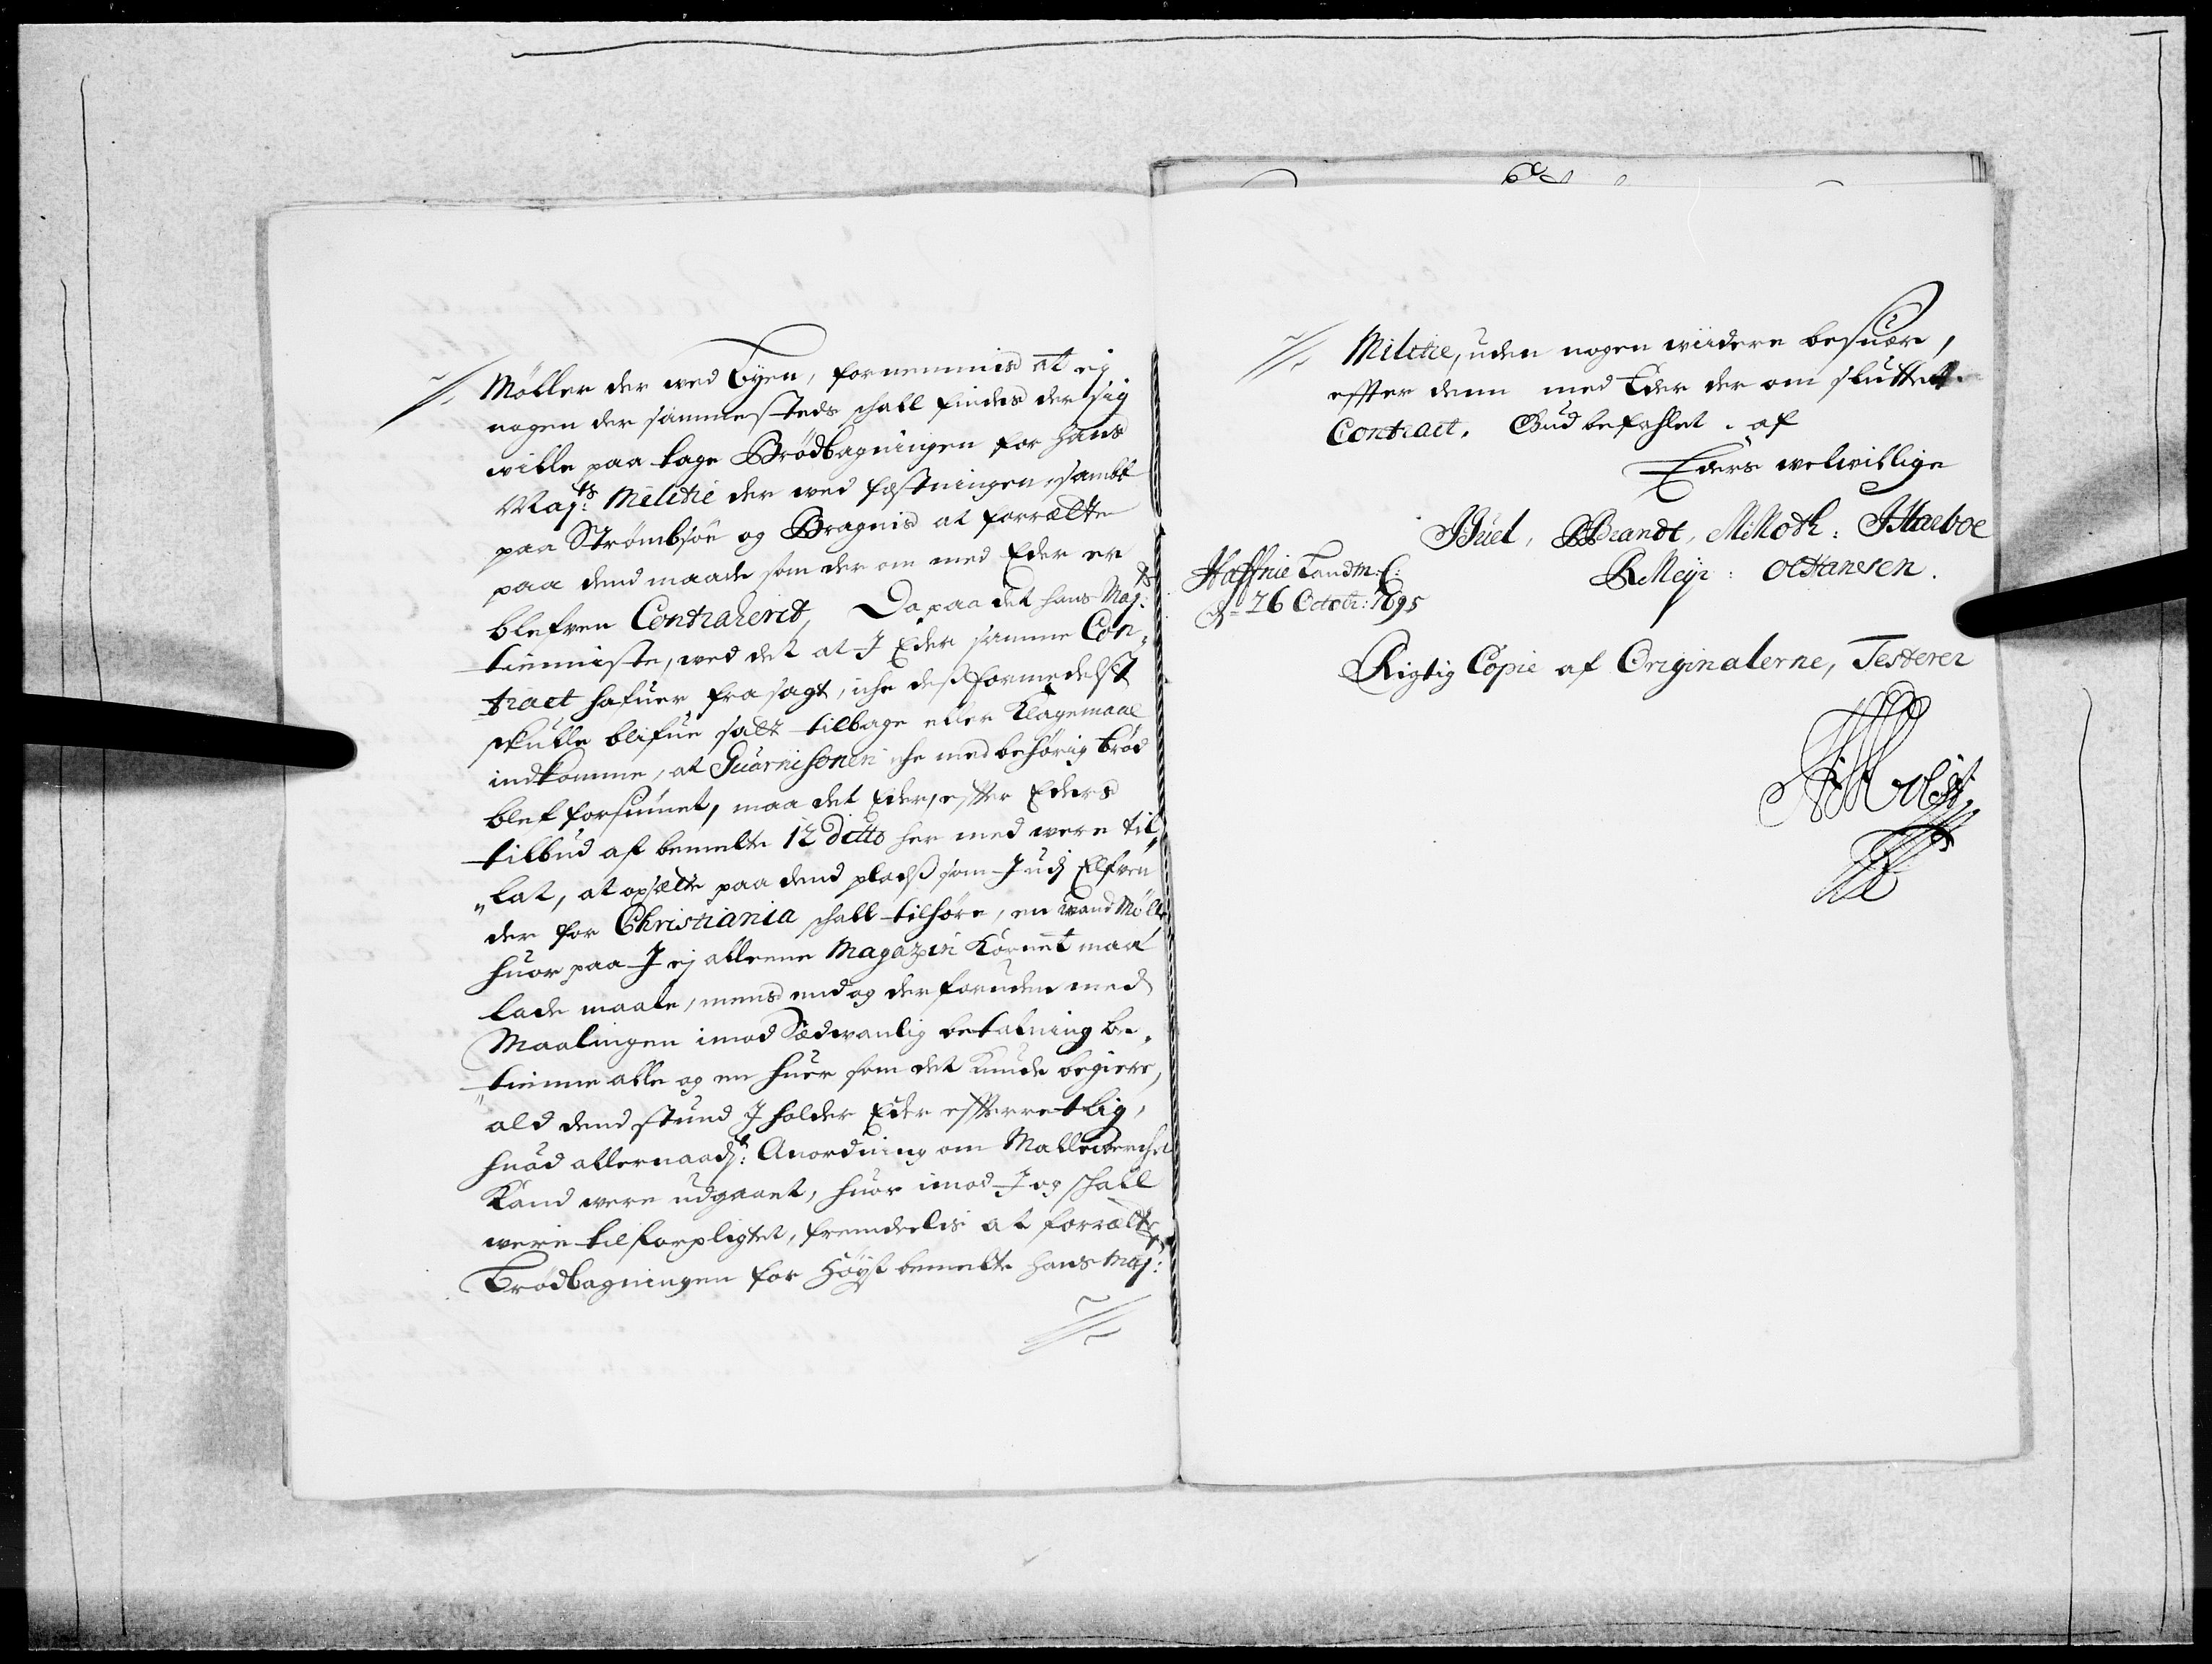 Møller der ved Byen, fornemmis at ej
nogen der sammesteds schall findes der sig
wille paa tage Brødbagningen for hans
Maj:ts Militie der wed fæstningen, sambt
paa Strømbsøe og Bragnis at forrætte
paa dend maade som der om med Eder er
blefven Contraherit, Da paa det hans Maj:ts
tienniste, wed det at I Eder samme Con„
tract hafuer fra sagt, iche dess formedelst
skulle blifue satt tilbage eller Klagemaal
indkomme, at Guarnisonen iche med behørig brød
blef forsiunet, maa det Eder, efter Eders
tilbud af bemelte 12 ditto her med were til„
„lat, at opsætte paa dend pladtz som I udj Elfven
der for Christiania schall tilhøre, en wand Mølle
huor paa I ej alleene Magazin Kornet maa
lade maale, mens end og der foruden med
Maalingen imod Sædwanlig betalning be„
„tienne alle og en huer som det kunde begiere,
ald dend stund I holder Eder efterretlig,
huad allernaadst: Anordning om Mølleværcher
Kand were udgaaet, huor imod I og schall
were tilforpligtet, fremdeelis at forrætte
Brødbagningen for Høyst bemelte hans Maj:ts
Militie, uden nogen widere besuære,
effter denn med Eder der om sluttet
Contract. Gud befahlet. af
Eders welwillige
JJuel, PBrandt, MMoth: JHarboe
RMeyr: OHansen.
Haffnie Landm: C:
d= 26 Octobr: 1695
Rigtig Copie af Originalerne, Testerer